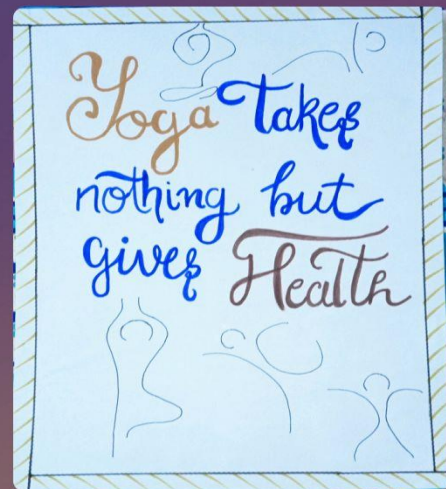 Yoga Takes
nothing but
gives Health